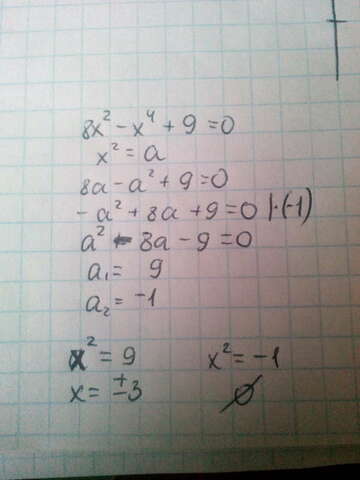 8x² - x⁴ + 9 = 0
x² = a
8a - a² + 9 = 0
-a² + 8a + 9 = 0 |·(-1)
a² - 8a - 9 = 0
a₁ = 9
a₂ = -1
x² = 9 x² = -1
x = ±3 ∅